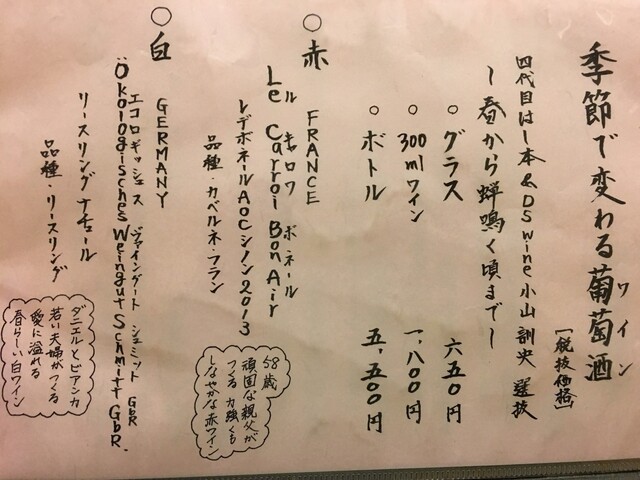 季節で変わる葡萄酒
ワイン
[税抜価格]
四代目は1本&DS wine 小山 訓央 選抜
~春から蝉鳴く頃まで~
○グラス 六五〇円
○300mlワイン 一、八〇〇円
○ボトル 五、五〇〇円
○赤 FRANCE
ル キャロワ ボネール
Le Carroi Bon Air
レデボネールAOCシノン2013
品種・カベルネ・フラン
58歳
頑固な親父が
つくる 力強くも
しなやかな赤ワイン
○白 GERMANY
エコロギッシェス ヴァイングート シュミット GBR
Ökologisches Weingut Schmitt GbR.
リースリング ナチュール
品種・リースリング
ダニエルとビアンカ
若い夫婦がつくる
愛に溢れる
春らしい白ワイン